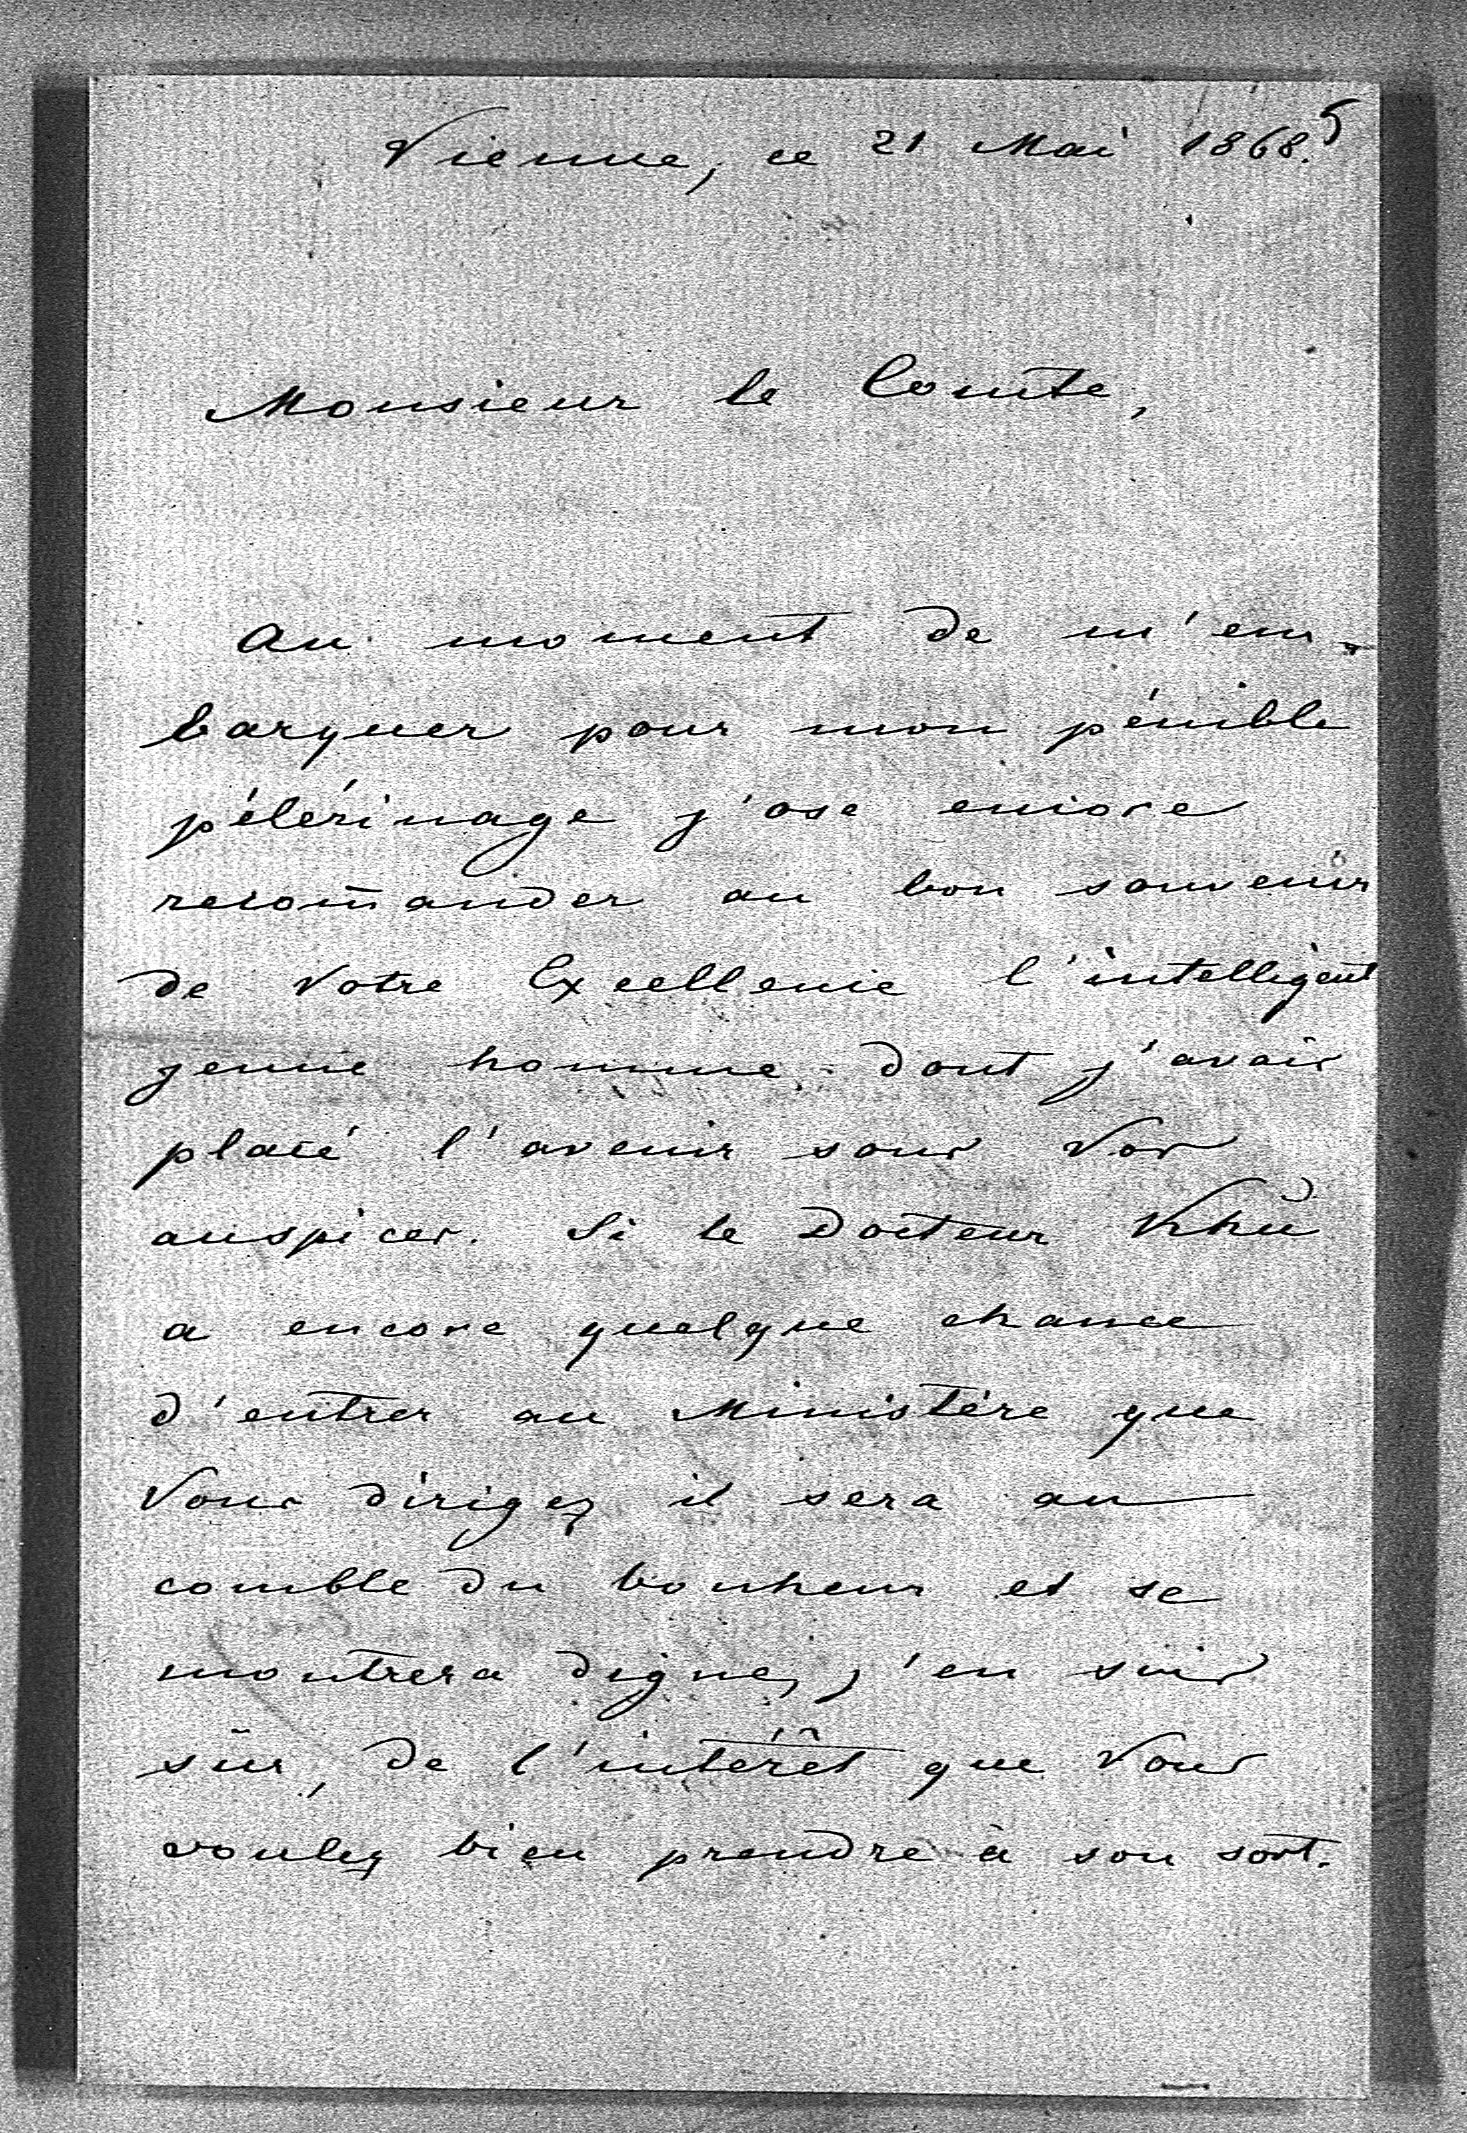 5
Vienne, ce 21 Mai 1868.
Monsieur le Comte,
Au moment de m'em-
barquer pour mon pénible
pélérinage j'ose encore
recom̄ander au bon souvenir
de Votre Excellence l'intelligent
jeune homme dont j'avais
placé l'avenir sous Vos
auspices. Si le Docteur
a encore quelque chance
d'entrer au Ministère que
Vous dirigez il sera au
comble du bonheur et se
montrera digne, j'en suis
sûr, de l'intérêt que Vous
voulez bien prendre à son sort.